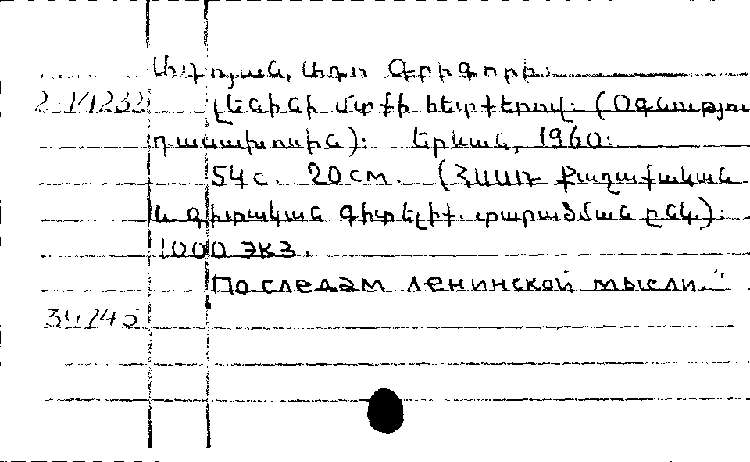 Ադոյան, Ադո Գրիգորի.
2-14232 Լենինի մտքի հետքերով. (Օգնություն
դասախոսին): Երևան, 1960.
54с. 20см. (ՀՍՍՌ Քաղաքական
և գիտական գիտելիք. տարածման ընկ.).
1000 экз.
По следам ленинской мысли."